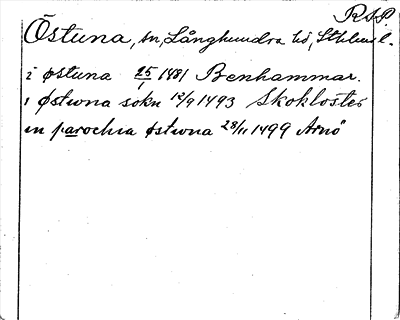 RSP.
Östuna, sn, Långhundra hd, Sthlms l.
i østuna 25/1 1481 Benhammar.
i østwna sokn 12/9 1493 Skokloster
in parochia østwna 28/11 1499 Arnö